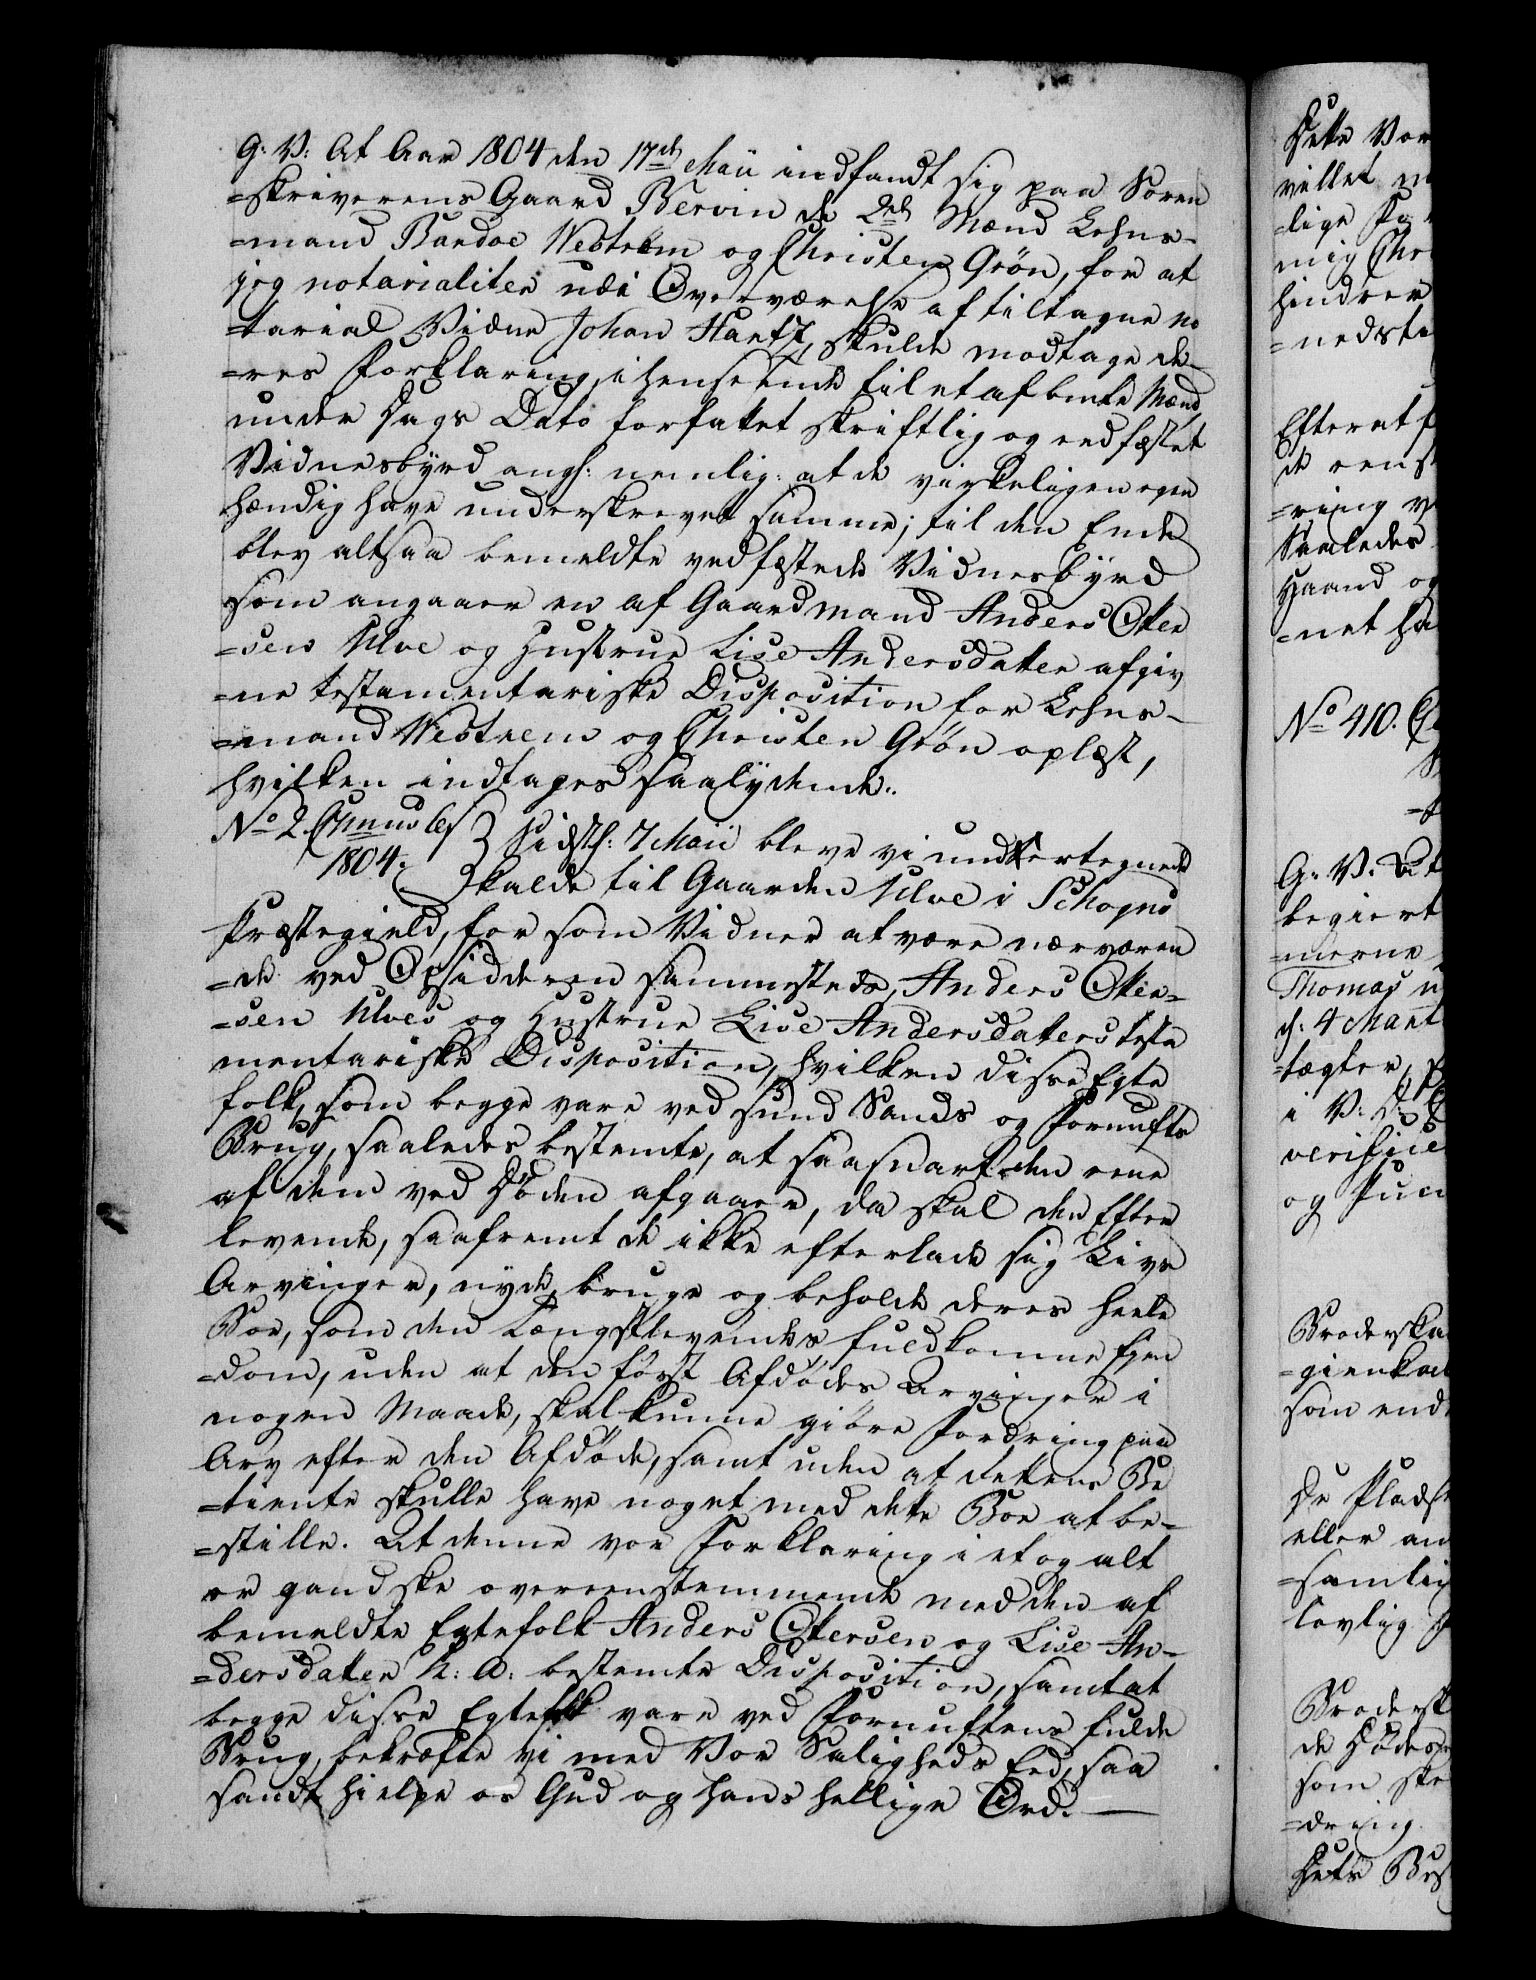 G: V: At Aar 1804 den 17de Maii indfandt sig paa Soren
=skriverens Gaard Bervin de 2de Mænd Lehns-
=mand Bardoe Westrem og Christen Grøn, for at
jeg notarialiter udi Overværelse af tiltagne no
=tarial Vidne Johan Hartz, skulde modtage de-
=res Forklaring, i henseende til et af bemte Mænd
under Dags Dato forfattet skriftlig og eedfæstet
Vidnesbyrd angl: nemlig: at de virkeligen egen
hændig have underskrevet samme; til den Ende
blev altsaa bemeldte eedfæstede Vidnesbyrd
som angaaer en af Gaardmand Anders Otter
=sen Ulve og Hustrue Lise Andersdatter afgiv
=ne testamentariske Disposition for Lehns-
=mand Westrem og Christen Grøn oplæst,
hvilken indtages saalydende:
No 2
1804. Sidstl: 7 Maii bleve vi undertegnede
kaldet til Gaarden Ulve i Schogns
Præstegield, for som Vidner at være nærværen
=de ved Opsidderen sammesteds, Anders Otter=
=sen Ulves og Hustrue Lise Andersdatters testa
mentariske Disposition, hvilken disse Egte
folk, som begge vare ved sund Sands og Fornufts
Brug, saaledes bestemte, at saasnart den eene
af dem ved Døden afgaaer, da skal den Efter
levende, saafremt de ikke efterlade sig Livs
Arvinger, nyde, bruge og beholde deres heele
Boe, som den Længstlevendes fuldkomne Ejen
=dom, uden at den først Afdødes Arvinger i
nogen Maade, skal kunne giøre Fordring paa
Arv efter den Afdøde, samt uden at Rettens Be
=tiente skulle have noget med dette Boe at be-
=stille. At denne vor Forklaring i et og alt
er gandske overeenstemmende med den af
bemeldte Egtefolk Anders Ottersen og Lise An-
=dersdatter h: a: bestemte Disposition, samt at
begge disse Egtefolk vare ved Fornuftens fulde
Brug, bekræfte vi med Vor Saligheds Eed, saa
sandt hielpe os Gud og hans hellige Ord.
Dette Vor
villet
=lige
mig Chr
hindrer
=nedsta
Efter at
de eens
=ring
Saaledes
Haand og
=net ha
No 410.
G. V. At
begiert
=merne
Thomas
d: 4 Mart
=tægter,
i V: d:
verificer
og
Broderska
=gienkal
som end
De Pladse
eller an
=samtlig
lovlig
Brodersk
de Dødes
som ske
=dring.
Hets Bes